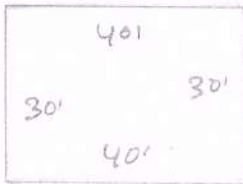 40'
30'
30'
40'